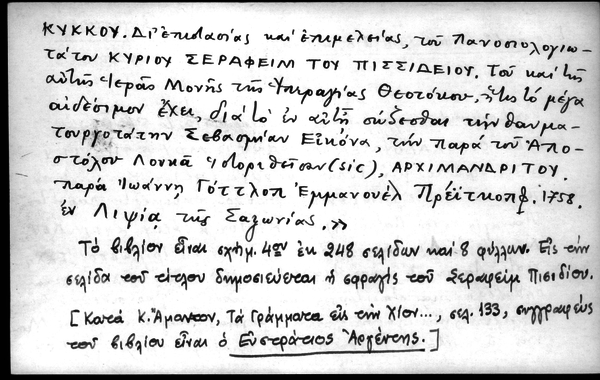 ΚΥΚΚΟΥ. Δι' ἐπιστασίας καὶ ἐπιμελείας, τοῦ Πανοσιολογιω-
τάτου ΚΥΡΙΟΥ ΣΕΡΑΦΕΙΜ ΤΟΥ ΠΙΣΣΙΔΕΙΟΥ. Τοῦ καὶ τῆς
αὐτῆς Ἱερᾶς Μονῆς τῆς Ὑπεραγίας Θεοτόκου, ἥτις τὸ μέγα
αἰδέσιμον ἔχει, διὰ τὸ ἐν αὐτῇ σώζεσθαι τὴν θαυμα-
τουργοτάτην Σεβασμίαν Εἰκόνα, τὴν παρὰ τοῦ Ἀπο-
στόλου Λουκᾶ ἱστορηθεῖσαν (sic), ΑΡΧΙΜΑΝΔΡΙΤΟΥ.
παρὰ Ἰωάννῃ Γόττλοπ Ἐμμανουὲλ Πρέϊτκοπφ. 1758.
ἐν Λιψίᾳ τῆς Σαξωνίας. »
Τὸ βιβλίον εἶναι σχήμ. 4ον ἐκ 248 σελίδων καὶ 8 φύλλων. Εἰς τὴν
σελίδα τοῦ τίτλου δημοσιεύεται ἡ σφραγὶς τοῦ Σεραφεὶμ Πισιδίου.
[Κατὰ Κ. Ἄμαντον, Τὰ Γράμματα εἰς τὴν Χίον..., σελ. 133, συγγραφεὺς
τοῦ βιβλίου εἶναι ὁ Εὐστράτιος Ἀργέντης.]